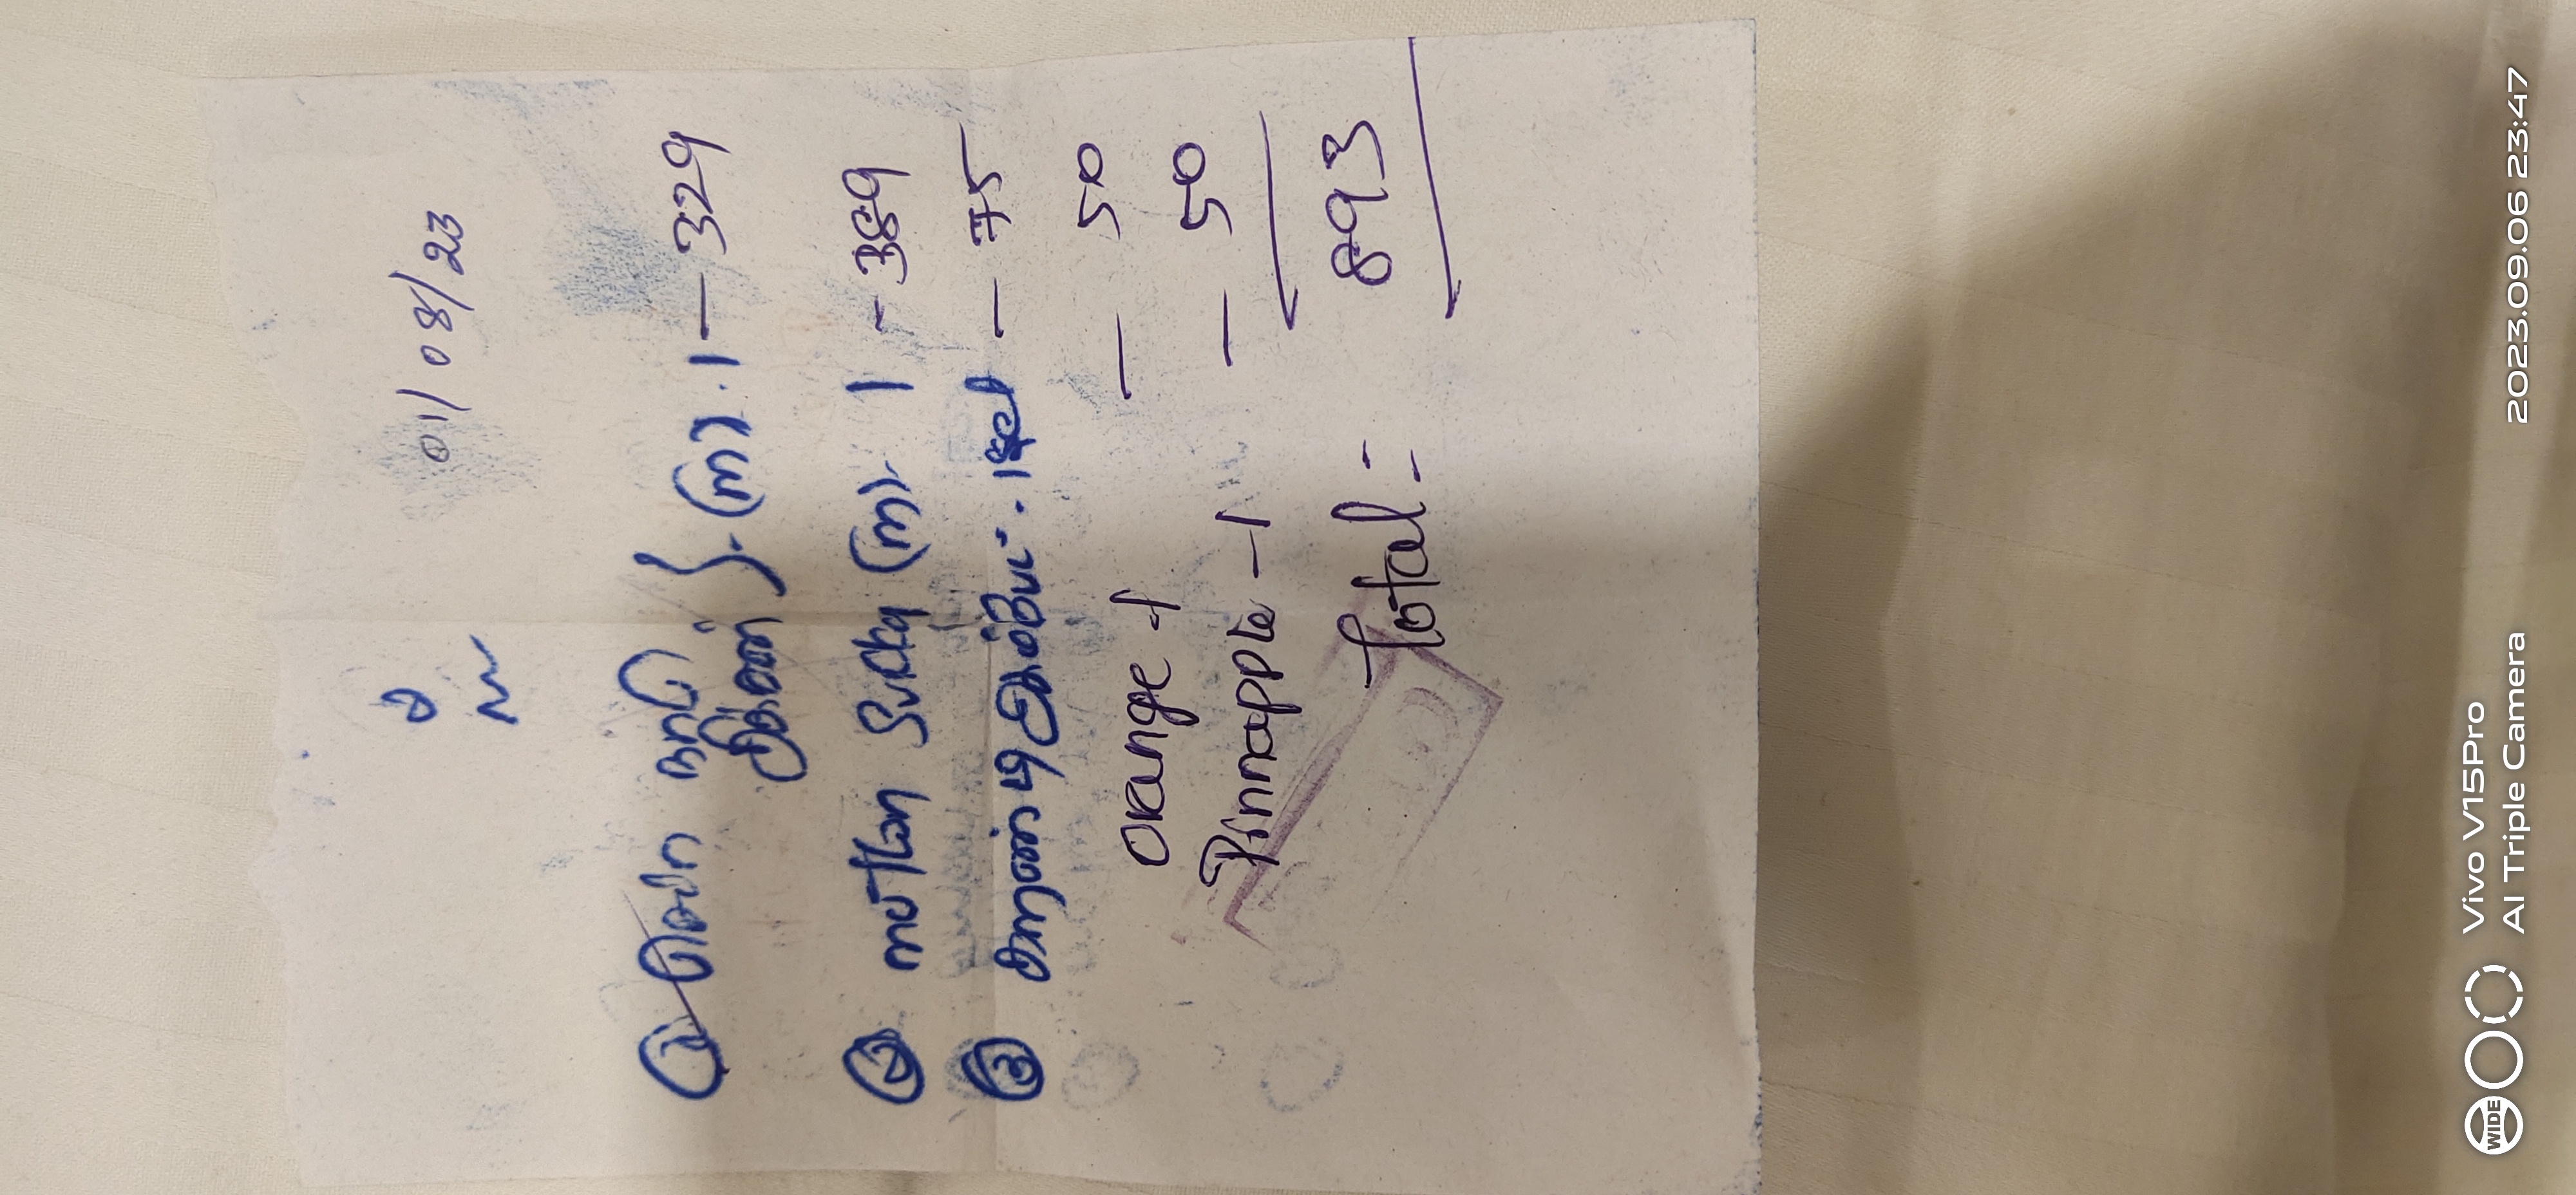 உ
01/08/23
① செட்டி நாடு
சிக்கன் } - (m) . 1 — 329
② mutton Sukka (m) - 1 - 389
③ கரண்டி ஆம்லேட் - 1 set — 75
Orange - 1 — 50
Pinnapple - 1 — 50
Total = 893
WIDE
Vivo V15Pro
AI Triple Camera
2023.09.06 23:47